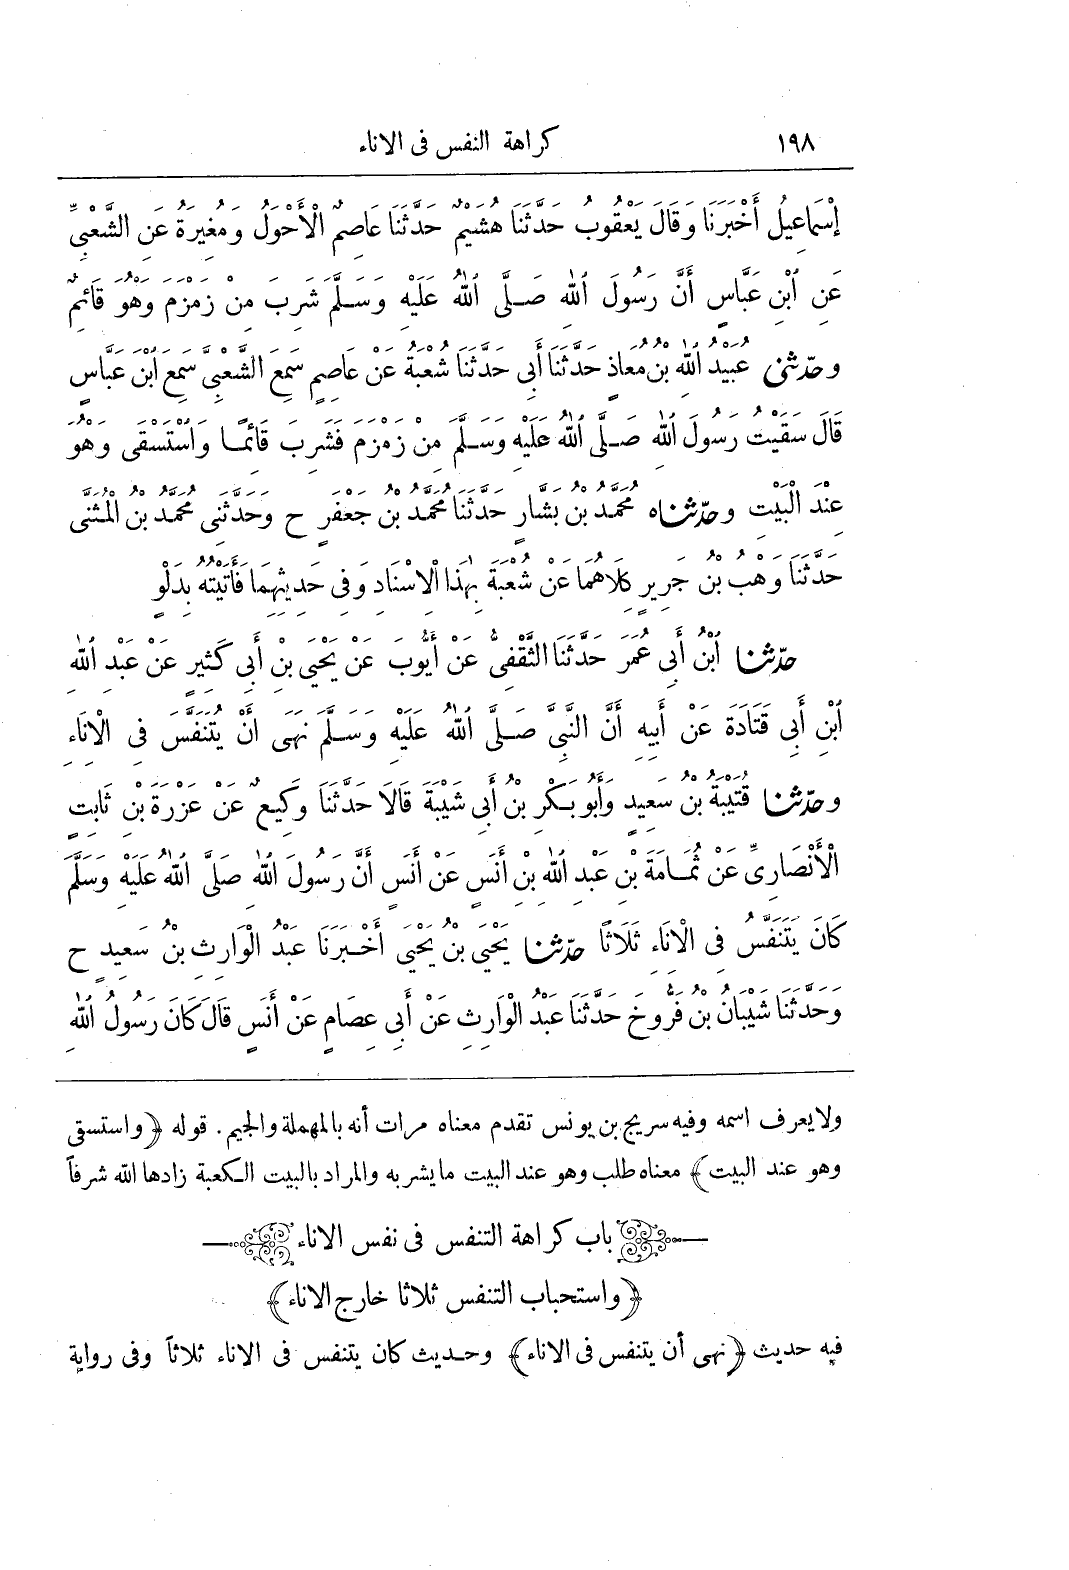 ١٩٨ كراهة النفس فى الاناء
إِسْمَاعِيلُ أَخْبَرَنَا وَقَالَ يَعْقُوبُ حَدَّثَنَا هُشَيْمٌ حَدَّثَنَا عَاصِمٌ الْأَحْوَلُ وَمُغِيرَةُ عَنِ الشَّعْبِيِّ
عَنِ ابْنِ عَبَّاسٍ أَنَّ رَسُولَ اللهِ صَلَّى اللهُ عَلَيْهِ وَسَلَّمَ شَرِبَ مِنْ زَمْزَمَ وَهُوَ قَائِمٌ
وحدّثنى عُبَيْدُ اللهِ بْنُ مُعَاذٍ حَدَّثَنَا أَبِى حَدَّثَنَا شُعْبَةُ عَنْ عَاصِمٍ سَمِعَ الشَّعْبِىَّ سَمِعَ ابْنَ عَبَّاسٍ
قَالَ سَقَيْتُ رَسُولَ اللهِ صَلَّى اللهُ عَلَيْهِ وَسَلَّمَ مِنْ زَمْزَمَ فَشَرِبَ قَائِمًا وَاسْتَسْقَى وَهُوَ
عِنْدَ الْبَيْتِ وحدّثناه مُحَمَّدُ بْنُ بَشَّارٍ حَدَّثَنَا مُحَمَّدُ بْنُ جَعْفَرٍ ح وَحَدَّثَنِى مُحَمَّدُ بْنُ الْمُثَنَّى
حَدَّثَنَا وَهْبُ بْنُ جَرِيرٍ كِلَاهُمَا عَنْ شُعْبَةَ بِهٰذَا الْاِسْنَادِ وَفِى حَدِيثِهِمَا فَأَتَيْتُهُ بِدَلْوٍ
حدّثنا ابْنُ أَبِى عُمَرَ حَدَّثَنَا الثَّقَفِىُّ عَنْ أَيُّوبَ عَنْ يَحْيَى بْنِ أَبِى كَثِيرٍ عَنْ عَبْدِ اللهِ
ابْنِ أَبِى قَتَادَةَ عَنْ أَبِيهِ أَنَّ النَّبِىَّ صَلَّى اللهُ عَلَيْهِ وَسَلَّمَ نَهَى أَنْ يُتَنَفَّسَ فِى الْاِنَاءِ
وحدّثنا قُتَيْبَةُ بْنُ سَعِيدٍ وَأَبُو بَكْرِ بْنُ أَبِى شَيْبَةَ قَالَا حَدَّثَنَا وَكِيعٌ عَنْ عَزْرَةَ بْنِ ثَابِتٍ
الْأَنْصَارِىِّ عَنْ ثُمَامَةَ بْنِ عَبْدِ اللهِ بْنِ أَنَسٍ عَنْ أَنَسٍ أَنَّ رَسُولَ اللهِ صَلَّى اللهُ عَلَيْهِ وَسَلَّمَ
كَانَ يَتَنَفَّسُ فِى الْاِنَاءِ ثَلَاثًا حدّثنا يَحْيَى بْنُ يَحْيَى أَخْبَرَنَا عَبْدُ الْوَارِثِ بْنُ سَعِيدٍ ح
وَحَدَّثَنَا شَيْبَانُ بْنُ فَرُّوخَ حَدَّثَنَا عَبْدُ الْوَارِثِ عَنْ أَبِى عِصَامٍ عَنْ أَنَسٍ قَالَ كَانَ رَسُولُ اللهِ
ولا يعرف اسمه وفيه سريج بن يونس تقدم معناه مرات أنه بالمهملة والجيم . قوله ﴿واستسقى
وهو عند البيت﴾ معناه طلب وهو عند البيت ما يشربه والمراد بالبيت الكعبة زادها الله شرفاً
باب كراهة التنفس فى نفس الاناء
﴿واستحباب التنفس ثلاثا خارج الاناء﴾
فيه حديث ﴿نهى أن يتنفس فى الاناء﴾ وحديث كان يتنفس فى الاناء ثلاثاً وفى رواية